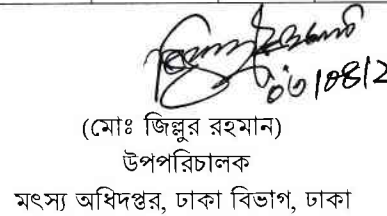 (মোঃ জিল্লুর রহমান)
উপপরিচালক
মৎস্য অধিদপ্তর, ঢাকা বিভাগ, ঢাকা